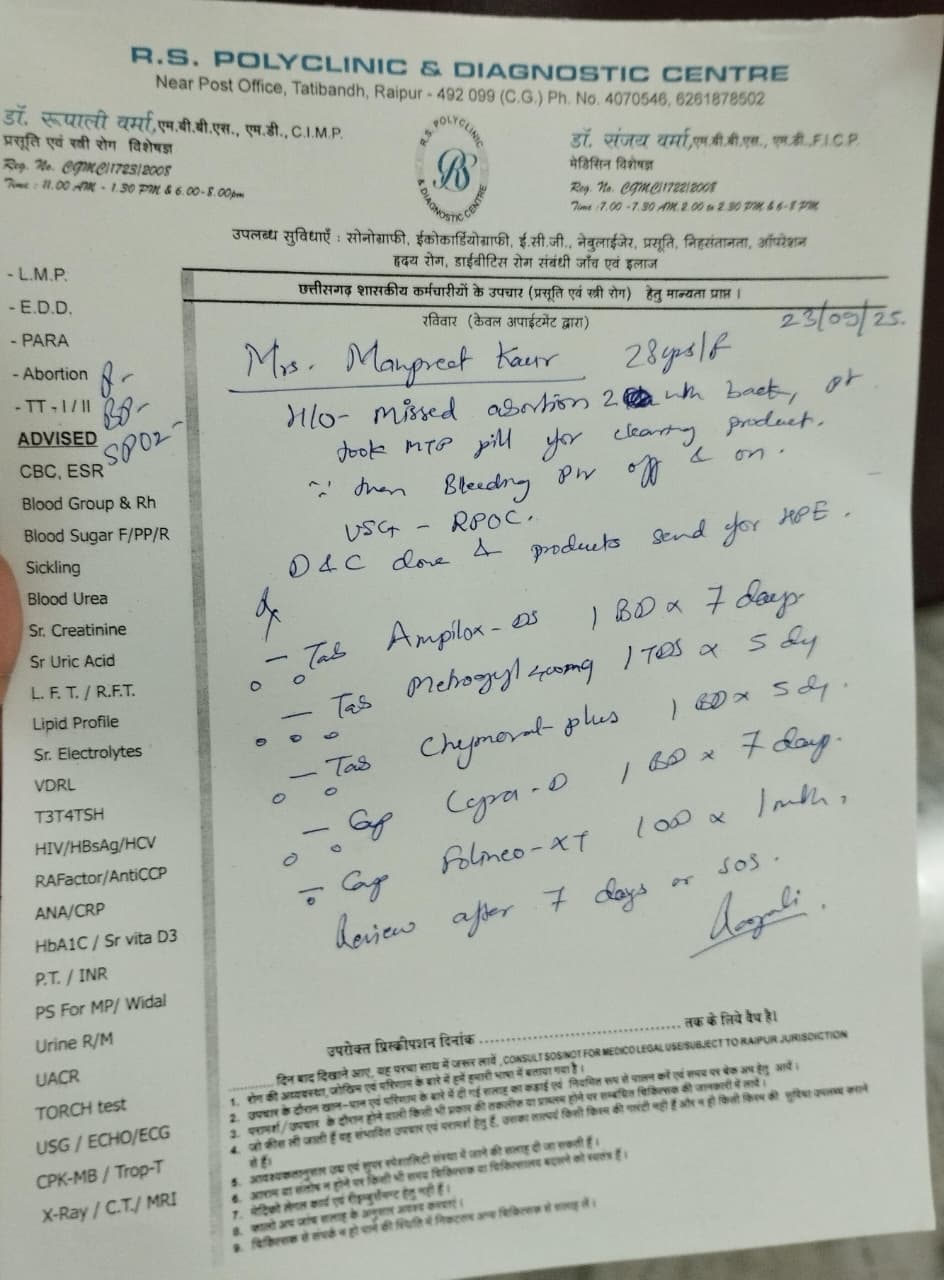 R.S. POLYCLINIC & DIAGNOSTIC CENTRE
Near Post Office, Tatibandh, Raipur - 492 099 (C.G.) Ph. No. 4070546, 6261878502
डॉ. रूपाली वर्मा, एम.बी.बी.एस., एम.डी., C.I.M.P.
प्रसूति एवं स्त्री रोग विशेषज्ञ
Reg. No. CGMC/1723/2008
Time : 11.00 AM - 1.30 PM & 6.00-8.00pm
R.S. POLYCLINIC
& DIAGNOSTIC CENTRE
डॉ. संजय वर्मा, एम.बी.बी.एस., एम.डी. F.I.C.P.
मेडिसिन विशेषज्ञ
Reg. No. CGMC/1722/2008
Time : 7.00 - 7.30 AM 2.00 to 2.30 PM & 6-8 PM
उपलब्ध सुविधाएँ : सोनोग्राफी, ईकोकार्डियोग्राफी, ई.सी.जी., नेबुलाईजेर, प्रसूति, निहसंतानता, ऑपरेशन
हृदय रोग, डाईबीटिस रोग संबंधी जाँच एवं इलाज
छत्तीसगढ़ शासकीय कर्मचारीयों के उपचार (प्रसूति एवं स्त्री रोग) हेतु मान्यता प्राप्त ।
रविवार (केवल अपाईटमेंट द्वारा)
23/09/25.
- L.M.P.
- E.D.D.
- PARA
- Abortion
- TT - I / II BP-
ADVISED SPO2-
CBC, ESR
Blood Group & Rh
Blood Sugar F/PP/R
Sickling
Blood Urea
Sr. Creatinine
Sr Uric Acid
L. F. T. / R.F.T.
Lipid Profile
Sr. Electrolytes
VDRL
T3T4TSH
HIV/HBsAg/HCV
RAFactor/AntiCCP
ANA/CRP
HbA1C / Sr vita D3
P.T. / INR
PS For MP/ Widal
Urine R/M
UACR
TORCH test
USG / ECHO/ECG
CPK-MB / Trop-T
X-Ray / C.T./ MRI
Mrs. Manpreet Kaur 28yrs/f
H/O- Missed abortion 2 wk back, pt
took MTP pill for clearing product.
then Bleeding P/v off & on.
USG - RPOC.
D & C done & products send for HPE.
Rx
- Tab Ampilox-DS 1 BD x 7 days
- Tab Metrogyl 400mg 1 TDS x 5 dy
- Tab Chymoral-plus 1 BD x 5 dy.
- Cap Cyra-D 1 BD x 7 days.
- Cap Folineo-XT 1 OD x 1 mth.
Review after 7 days or SOS.
उपरोक्त प्रिस्क्रीपशन दिनांक ........................ तक के लिये वैध है।
.......... दिन बाद दिखाने आए, यह परचा साथ में जरूर लावें, CONSULT SOS/NOT FOR MEDICO LEGAL USE/SUBJECT TO RAIPUR JURISDICTION
1. रोग की अवस्था, जोखिम एवं परिणाम के बारे में हमें हमारी भाषा में बताया गया है।
2. उपचार के दौरान खान-पान एवं परिणाम के बारे में दी गई सलाह का कड़ाई एवं नियमित रूप से पालन करें एवं समय पर चेक अप हेतु आयें।
3. परामर्श / उपचार के दौरान होने वाली किसी भी प्रकार की तकलीफ या प्राब्लम होने पर सम्बंधित चिकित्सक की जानकारी में लावें।
4. जो फीस ली जाती हैं वह संभावित उपचार एवं परामर्श हेतु हैं, उसका तात्पर्य किसी किस्म की गारंटी नहीं हैं और न ही किसी किस्म की सुविधा उपलब्ध कराने
से हैं।
5. आवश्यकतानुसार उच्च एवं सुपर स्पेशालिटी संस्था में जाने की सलाह दी जा सकती हैं।
6. आराम या संतोष न होने पर किसी भी समय चिकित्सक या चिकित्सालय बदलने को स्वतंत्र हैं।
7. मेडिको लेगल कार्य एवं रीइम्बुर्समेन्ट हेतु नहीं हैं।
8. जांच सलाह के अनुसार अवश्य करवाएं।
9. चिकित्सक से संपर्क न हो पाने की स्थिति में निकटतम अन्य चिकित्सक से सलाह लें।